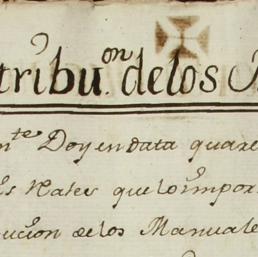 tribu.on de los
nte Doy en data quare
es Rales que lo impor
ucion de los Manuale